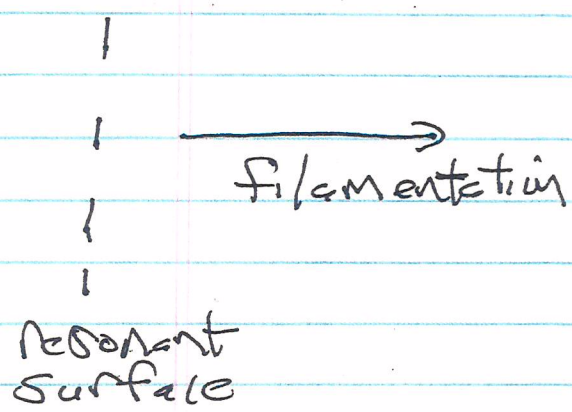 filamentation
resonant
surface